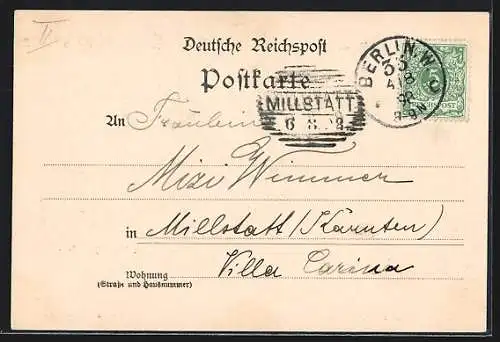 II
Deutsche Reichspost
Postkarte
BERLIN W
35
MILLSTATT
6 8
REICHSPOST
An Fräulein
Mizi Wimmer
in Millstatt (Kärnten)
Villa Carina
Wohnung
(Straße und Hausnummer)